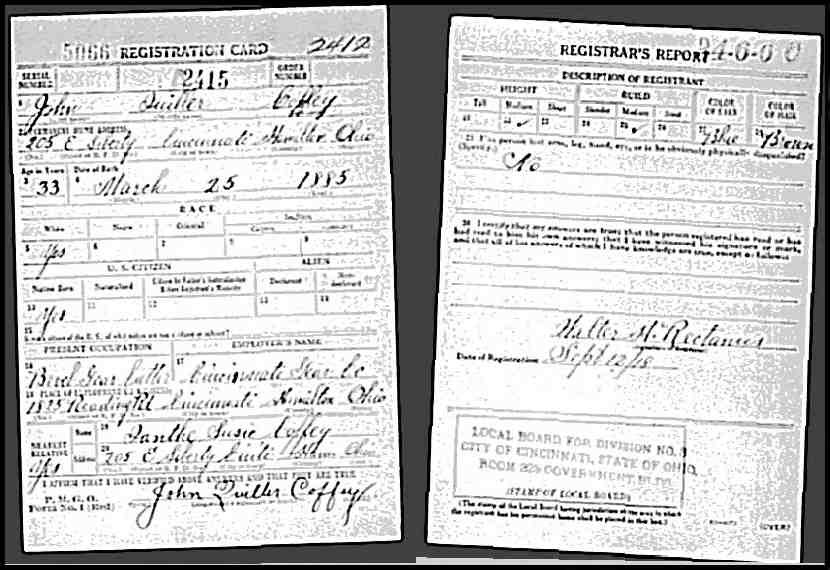 5066 REGISTRATION CARD 2412
SERIAL NUMBER 2415 ORDER NUMBER
John Quiller Coffey
PERMANENT HOME ADDRESS
205 E Liberty Cincinnati Hamilton Ohio
Age in Years Date of Birth
33 March 25 1885
RACE
White Negro Oriental Indian
Yes
U. S. CITIZEN ALIEN
Native Born Naturalized Declarant Non-declarant
Yes
PRESENT OCCUPATION EMPLOYER'S NAME
Bevel Gear Cutter Cincinnati Gear Co
1825 Reading Rd Cincinnati Hamilton Ohio
NEAREST RELATIVE Name Ianthe Susie Coffey
Yes Address 205 E Liberty Ohio
I AFFIRM THAT I HAVE VERIFIED ABOVE ANSWERS AND THAT THEY ARE TRUE
P. M. G. O.
Form No. 1 (Red) John Quiller Coffey
REGISTRAR'S REPORT
DESCRIPTION OF REGISTRANT
HEIGHT BUILD COLOR OF EYES COLOR OF HAIR
Tall Medium Short Slender Medium Stout
Blue Brown
Has person lost arm, leg, hand, eye, or is he obviously physically disqualified?
(Specify.) No
30 I certify that my answers are true; that the person registered has read or has
had read to him his own answers; that I have witnessed his signature or mark,
and that all of his answers of which I have knowledge are true, except as follows:
Date of Registration Sept 12/18
LOCAL BOARD FOR DIVISION NO. 3
CITY OF CINCINNATI, STATE OF OHIO,
ROOM 325 GOVERNMENT BLDG.
(STAMP OF LOCAL BOARD)
(The stamp of the Local Board having jurisdiction of the area in which
the registrant has his permanent home shall be placed in this box.)
(OVER)